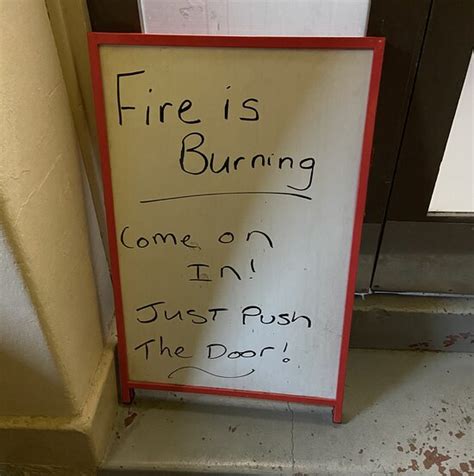 Fire is
Burning
Come on
In!
Just Push
The Door!